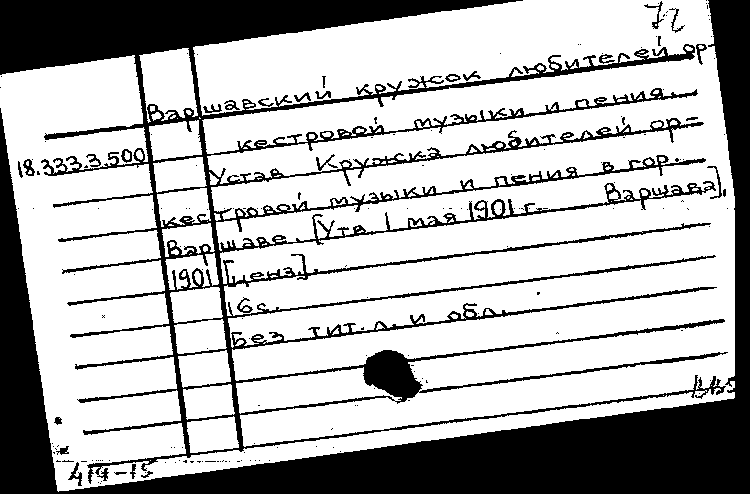 72
Варшавский кружок любителей ор-
кестровой музыки и пения.
18.333.3.500
Устав Кружка любителей ор-
кестровой музыки и пения в гор.
Варшаве. [Утв. 1 мая 1901 г. Варшава],
1901 [ценз].
16 с.
Без тит. л. и обл.